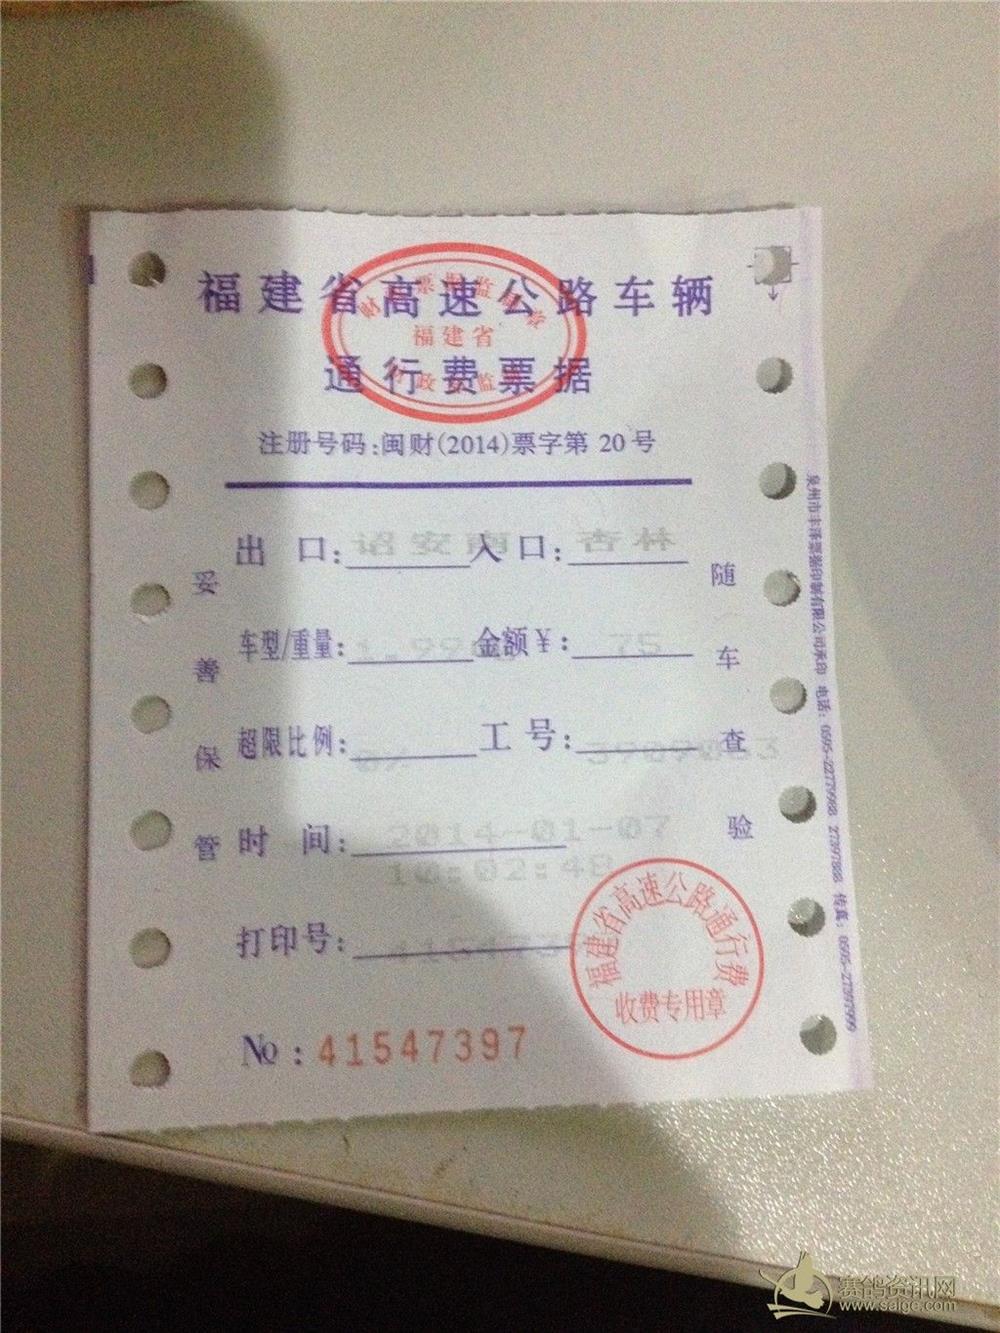 福建省高速公路车辆
通行费票据
福建省
注册号码:闽财(2014)票字第 20号
出 口: 诏安南 入 口: 杏林
车型/重量: 金额¥: 75
超限比例: 0% 工 号:
时 间: 2014-01-07
10:02:48
打印号:
No : 41547397
妥善保管
随车查验
福建省高速公路通行费
收费专用章
泉州市丰泽票据印制有限公司承印 电话: 0595-22779988 27397888 传真: 0595-27397999
赛鸽资讯网
www.saigc.com